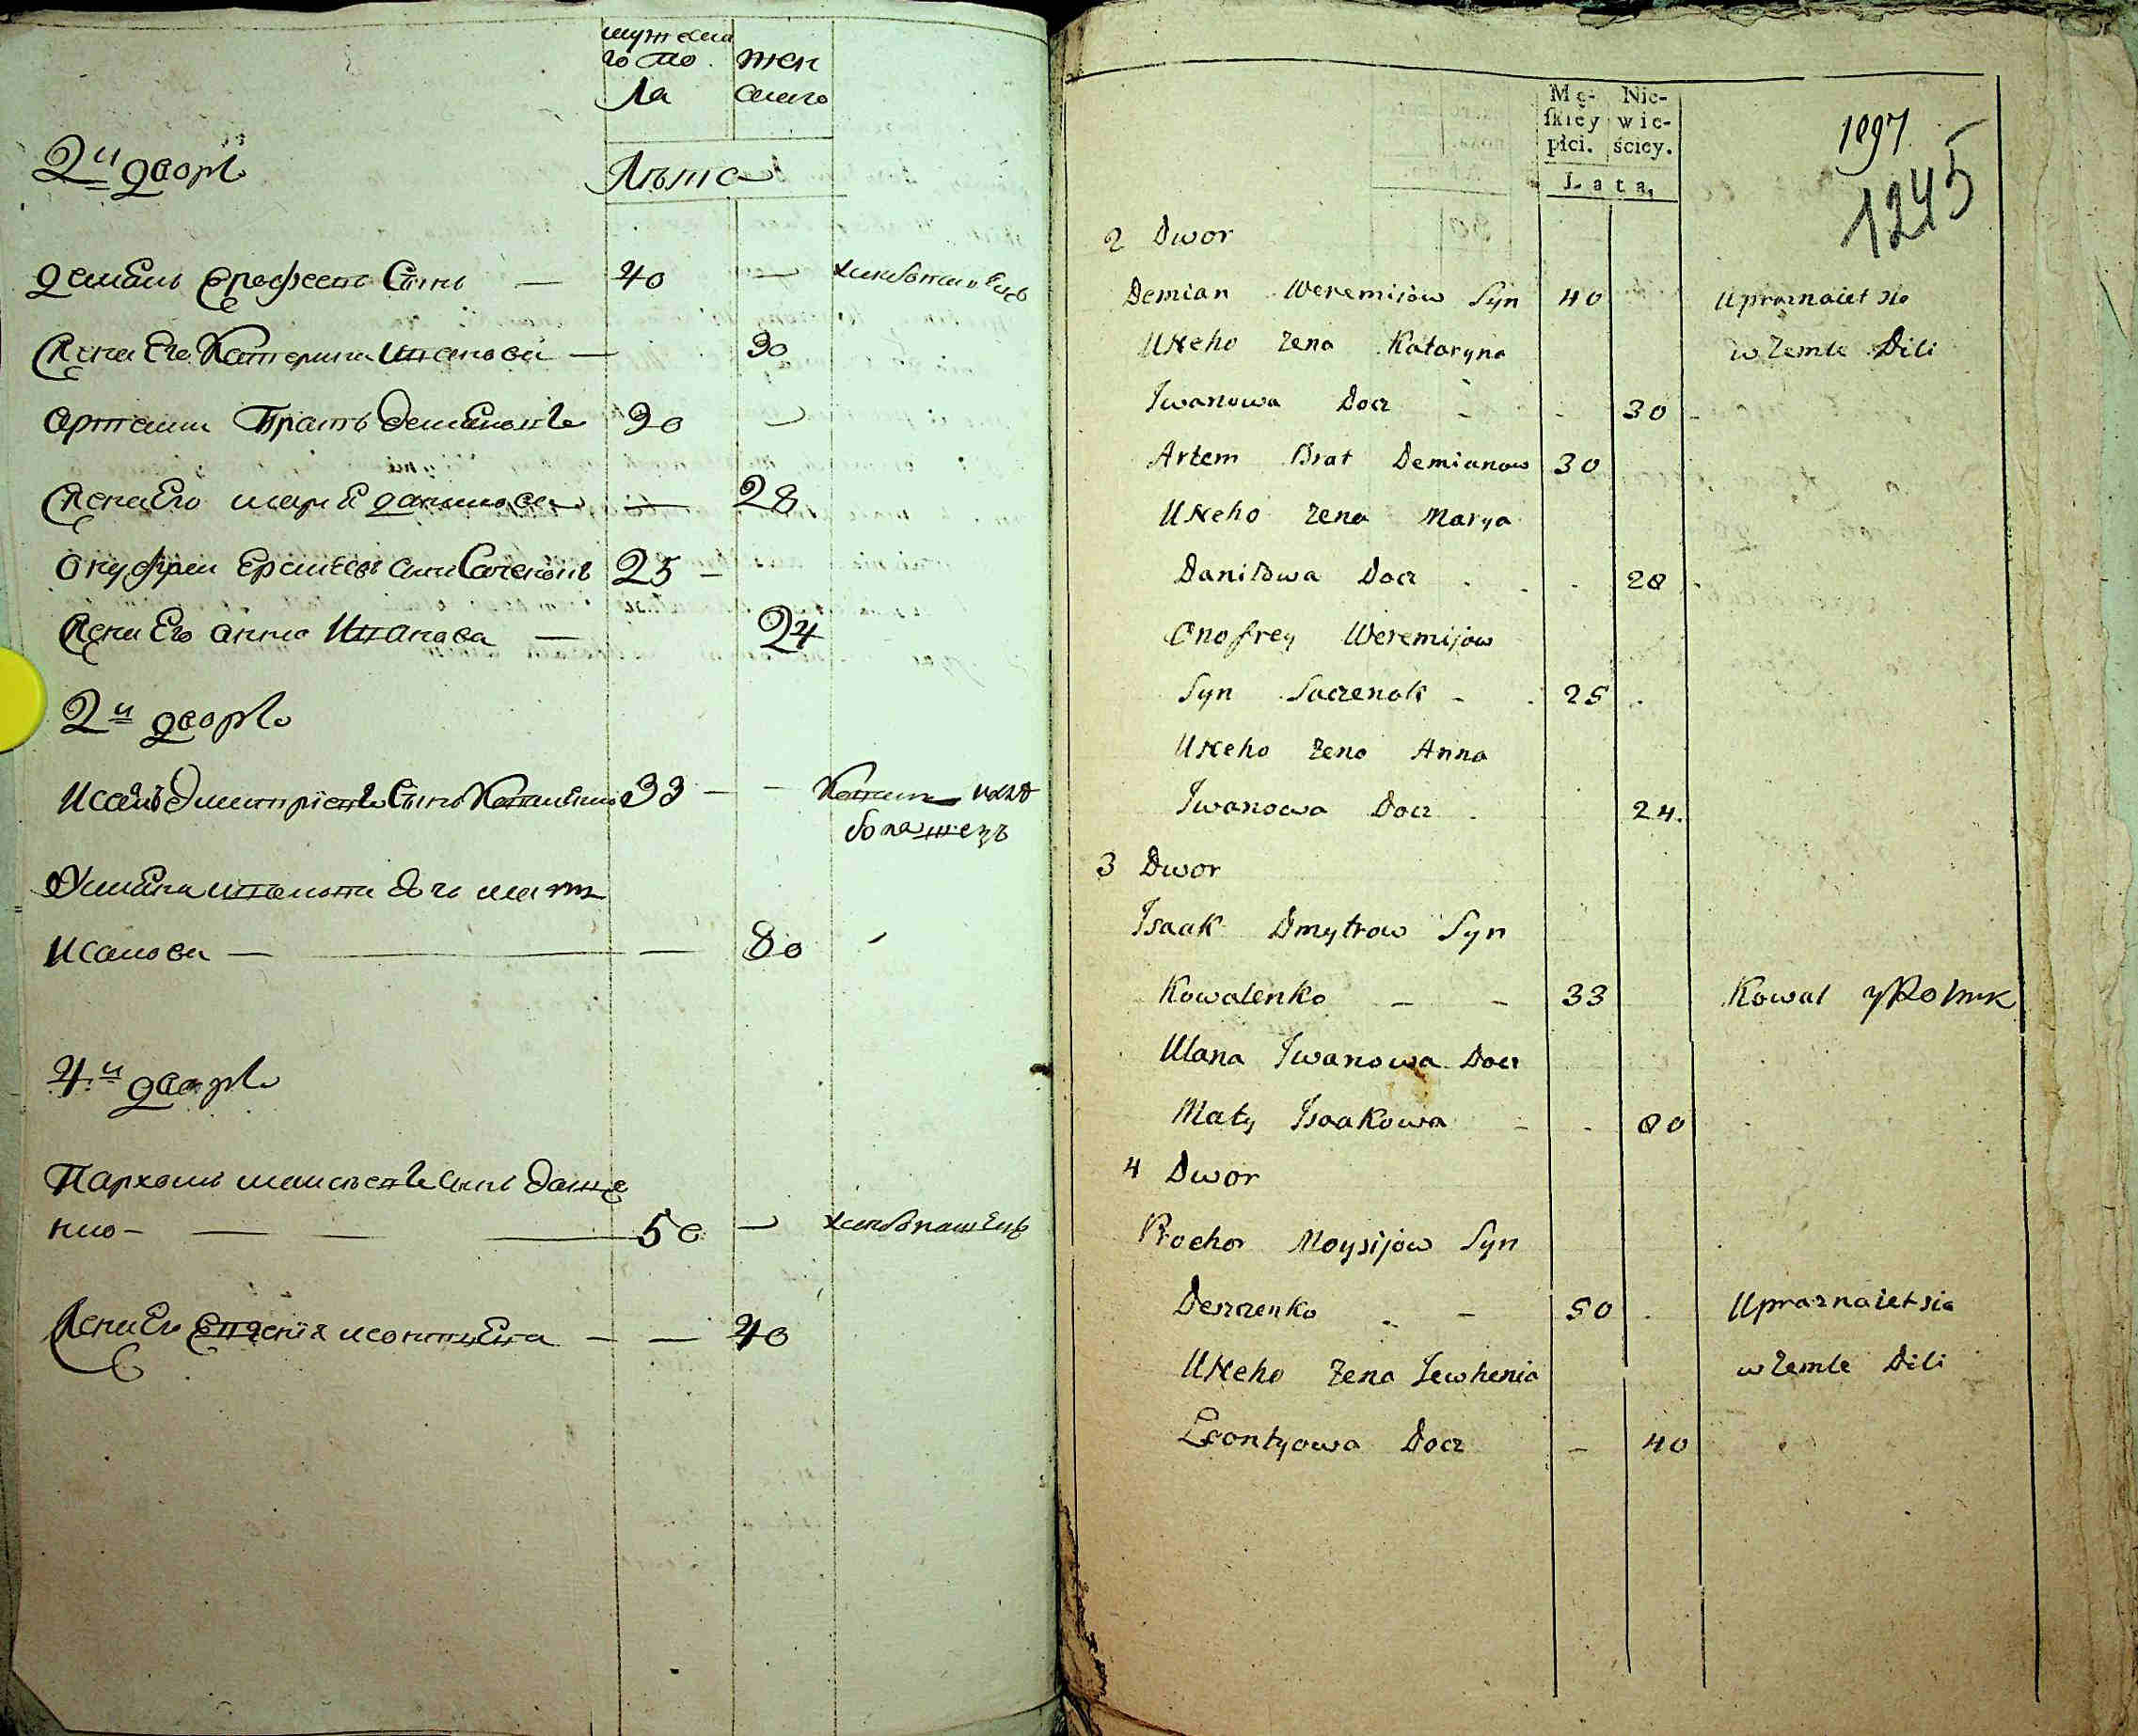 мужеска
го по
ла
жен
скаго
Лѣта
2й дворъ
демянъ Ерофеевъ Сынъ — 40 — хлебопашецъ
Жена Его Катерина Иванова — 30
артемъ Братъ демяновъ 30
Жена Его марья данилова — 28
онуфреи Еремеевъ сынъ Саченокъ 25 —
Жена Его анна Иванова — 24
2й дворъ
Исакъ дмитріевъ Сынъ Коваленко 33 — - Коваль
бопашецъ
Уляна иванова дочь мать
Исакова — — 80
4й дворъ
Пархомъ моисѣевъ сынъ даще
нко — — 50 — хлебопашецъ
Жена Его Евгенія леонтьева — — 40
Mę-
skiey
płci.
Nie-
wie-
ściey.
Lata,
1097
1245
2 Dwor
Demian Weremijow Syn 40 Upraznaiet sia
UNeho Zena Kataryna w Zemle Dili
Jwanowa Docz - - 30 -
Artem Brat Demianow 30
UNeho Zena Marya
Daniłowa Docz . . . 28 .
Onofrey Weremijow
Syn Saczenok - . 25 .
UNeho Zena Anna
Jwanowa Docz . 24.
3 Dwor
Jsaak Dmytrow Syn
Kowalenko - - 33 Kowal
Ulana Jwanowa Docz
Maty Jsaakowa - - 80
4 Dwor
Prochor Moysijow Syn
Deszczenko - - 50 . Upraznaiet sia
UNeho Zena Jewhenia w Zemle Dili
Leontyowa Docz - 40